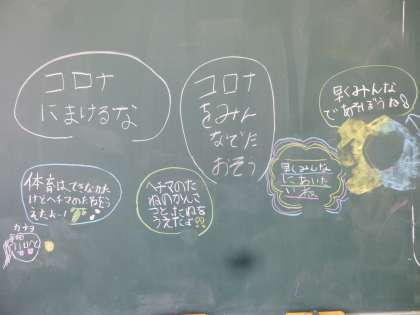 コロナ
にまけるな
コロナ
をみん
なでた
おそう
早くみんな
であそぼうね
早くみんな
にあいた
いね
体育はできなかった
けどヘチマのたねをう
えたよー!
ヘチマのた
ねのかんさ
つとたねを
うえたよ!!
カナヨ